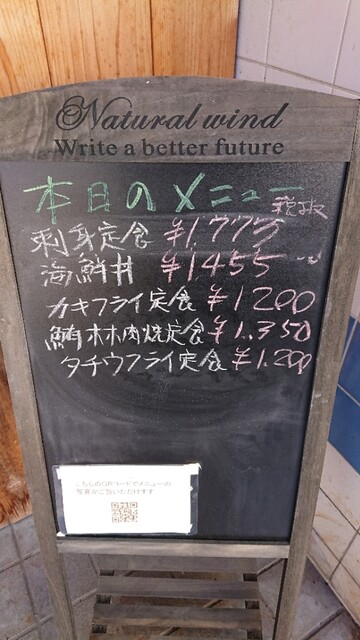 Natural wind
Write a better future
本日のメニュー 税抜
刺身定食 ¥1,775
海鮮丼 ¥1455
カキフライ定食 ¥1200
鮪ホホ肉焼定食 ¥1.350
タチウオフライ定食 ¥1.200
こちらのQRコードでメニューの
写真がご覧いただけます